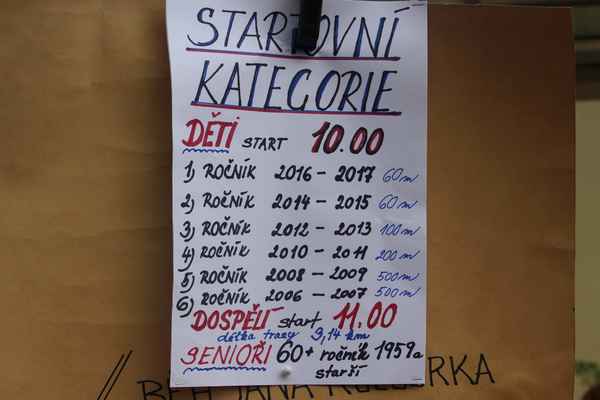 STARTOVNÍ
KATEGORIE
DĚTI START 10.00
1) ROČNÍK 2016 – 2017 60m
2) ROČNÍK 2014 – 2015 60m
3) ROČNÍK 2012 – 2013 100m
4) ROČNÍK 2010 – 2011 200m
5) ROČNÍK 2008 – 2009 500m
6) ROČNÍK 2006 – 2007 500m
DOSPĚLÍ start 11.00
délka trasy 3,14 km
SENIOŘI 60+ ročník 1959 a
starší
// BĚH JANA